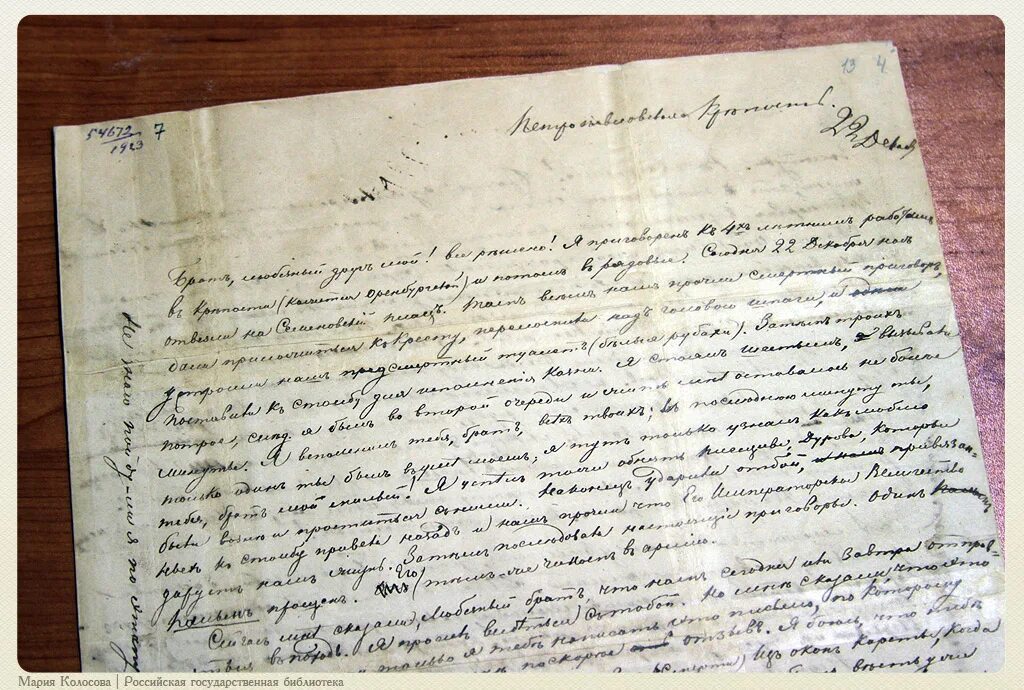 54672
1923
7
13 4
Петропавловская Крѣпость.
22 Декабр
Братъ, любезный другъ мой! все рѣшено! Я приговоренъ къ 4хъ лѣтнимъ работамъ
въ Крѣпости (кажется Оренбургской) и потомъ въ рядовые. Сегодня 22 Декабря насъ
отвезли на Семеновскій плацъ. Тамъ всѣмъ намъ прочли смертный приговоръ,
дали приложиться къ кресту, переломили надъ головою шпаги, и
устроили нашъ предсмертный туалетъ (бѣлыя рубахи). Затѣмъ троихъ
поставили къ столбу для исполненія казни. Я стоялъ шестымъ, вызывали
по трое, слѣд. я былъ во второй очереди и жить мнѣ оставалось не болѣе
минуты. Я вспомнилъ тебя, братъ, всѣхъ твоихъ; въ послѣднюю минуту ты,
только одинъ ты былъ въ умѣ моемъ; я тутъ только узналъ какъ люблю
тебя, братъ мой милый! Я успѣлъ тоже обнять Плещеева, Дурова, которые
были возлѣ и проститься съ ними. Наконецъ ударили отбой, привязан-
ныхъ къ столбу привели назадъ и намъ прочли что Его Императорское Величество
даруетъ намъ жизнь. Затѣмъ послѣдовали настоящіе приговоры. Одинъ
Пальмъ прощенъ. Его тѣмъ-же чиномъ въ армію.
Сейчасъ мнѣ сказали, любезный братъ, что намъ сегодня или завтра отправ-
ляться въ походъ. Я просилъ видѣться съ тобой. Но мнѣ сказали что это
только я тебѣ написать это письмо, по которому
поскорѣе отзывъ. Я боюсь, что тебѣ
Изъ оконъ кареты, когда
Не знаю пойду-ли я по этапу
Мария Колосова | Российская государственная библиотека